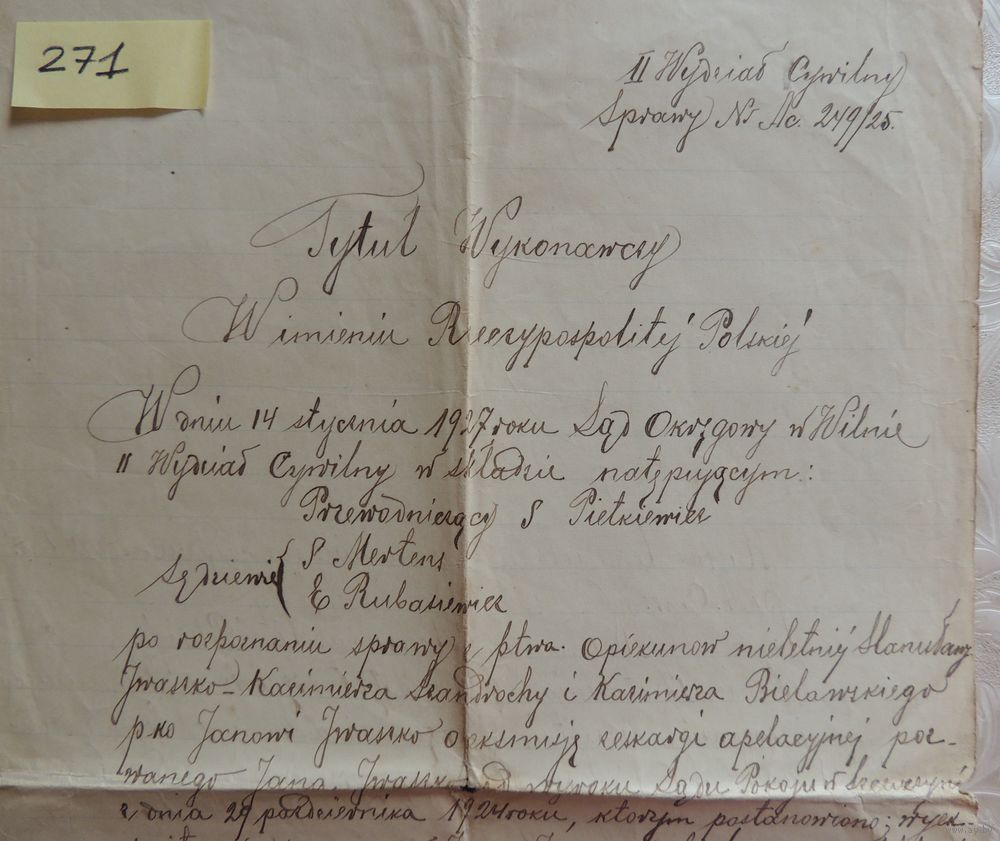 271
II Wydział Cywilny
Sprawy Nr Ac. 249/25.
Tytuł Wykonawczy
W imieniu Rzeczypospolitej Polskiej
W dniu 14 stycznia 1927 roku Sąd Okręgowy w Wilnie
II Wydział Cywilny w składzie natępującym:
Przewodniczący S Pietkiewicz
Sędziowie { S Mertens
E Rubasiewicz
po rozpoznaniu sprawy z ptwa. Opiekunow nieletniej
Iwaszko-Kazimierza Szandrochy i Kazimierza Bielawskiego
p-ko Janowi Iwaszko o eksmisję zeskargi apelacyjnej poz-
wanego Jana Iwaszko od wyroku Sądu Pokoju w
z dnia 29 października 1924 roku, ktorym postanowiono; wyek-
www.ay.by